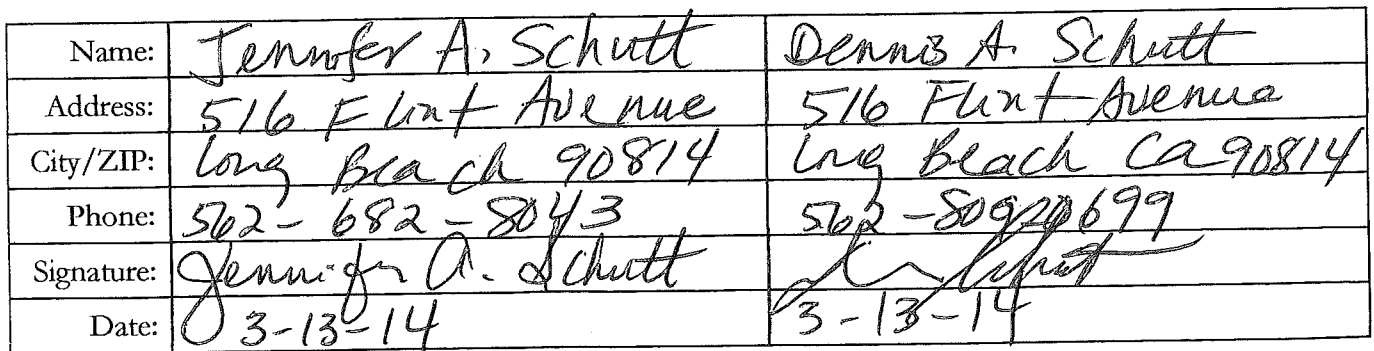 Name: Jennifer A. Schutt Dennis A. Schutt
Address: 516 Flint Avenue 516 Flint Avenue
City/ZIP: Long Beach 90814 Long Beach Ca 90814
Phone: 562-682-8043 562-809
Signature: Jennifer A. Schutt
Date: 3-13-14 3-13-14